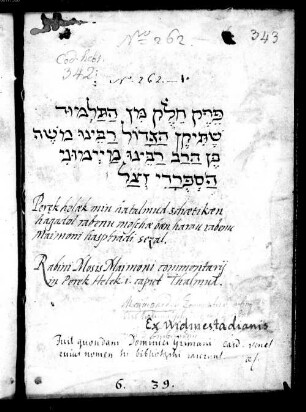 Nro 262.
343
Cod. hebr.
342.
No. 262.
פרק חלק מן התלמוד
שתיקן הגדול רבינו משה
בן הרב רבינו מיימוני
הספרדי זצל
Perek helak min hatalmud schetiken
hagadol rabenu mosche ben harau rabenu
Maimoni hasphradi sezal.
Rabini Mosis Maimoni commentarij
in Perek Helek i. caput Thalmud.
Ex Widmestadianis
Fuit quondam Dominici Grimani card.
cuius nomen
6. 39.